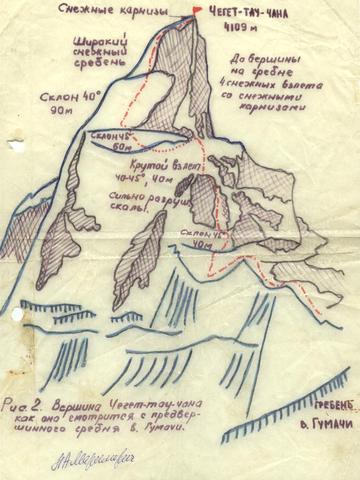 Снежные карнизы
ЧЕГЕТ-ТАУ-ЧАНА
4109 м
Широкий
снежный
гребень
До вершины
на гребне
4 снежных взлета
со снежными
карнизами
Склон 40°
90м
Склон 45°
60м
Крутой взлет
40-45°, 40м
Сильно разруш.
скалы.
Склон 45°
40м
Рис. 2. Вершина Чегет-тау-чана
как она смотрится с предвер-
шинного гребня в. Гумачи.
ГРЕБЕНЬ
в. Гумачи